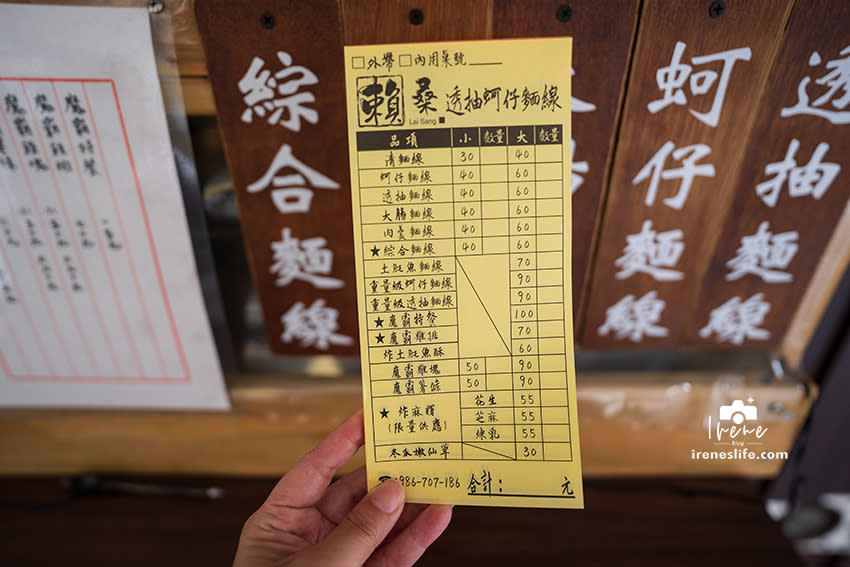 □外帶 □內用桌號
賴桑 透抽蚵仔麵線
Lai Sang
品項 小 數量 大 數量
清麵線 30 40
蚵仔麵線 40 60
透抽麵線 40 60
大腸麵線 40 60
肉羹麵線 40 60
★綜合麵線 40 60
土魠魚麵線 70
重量級蚵仔麵線 90
重量級透抽麵線 90
★魔霸特餐 100
★魔霸雞排 70
炸土魠魚酥 60
魔霸雞塊 50 90
魔霸薯條 50 90
★炸麻糬 花生 55
(限量供應) 芝麻 55
煉乳 55
冬瓜嫩仙草 30
☎0986-707-186 合計： 元
綜合麵線
蚵仔麵線
透抽麵線
魔霸特餐
魔霸雞排
魔霸雞塊
Irene
Blog
ireneslife.com